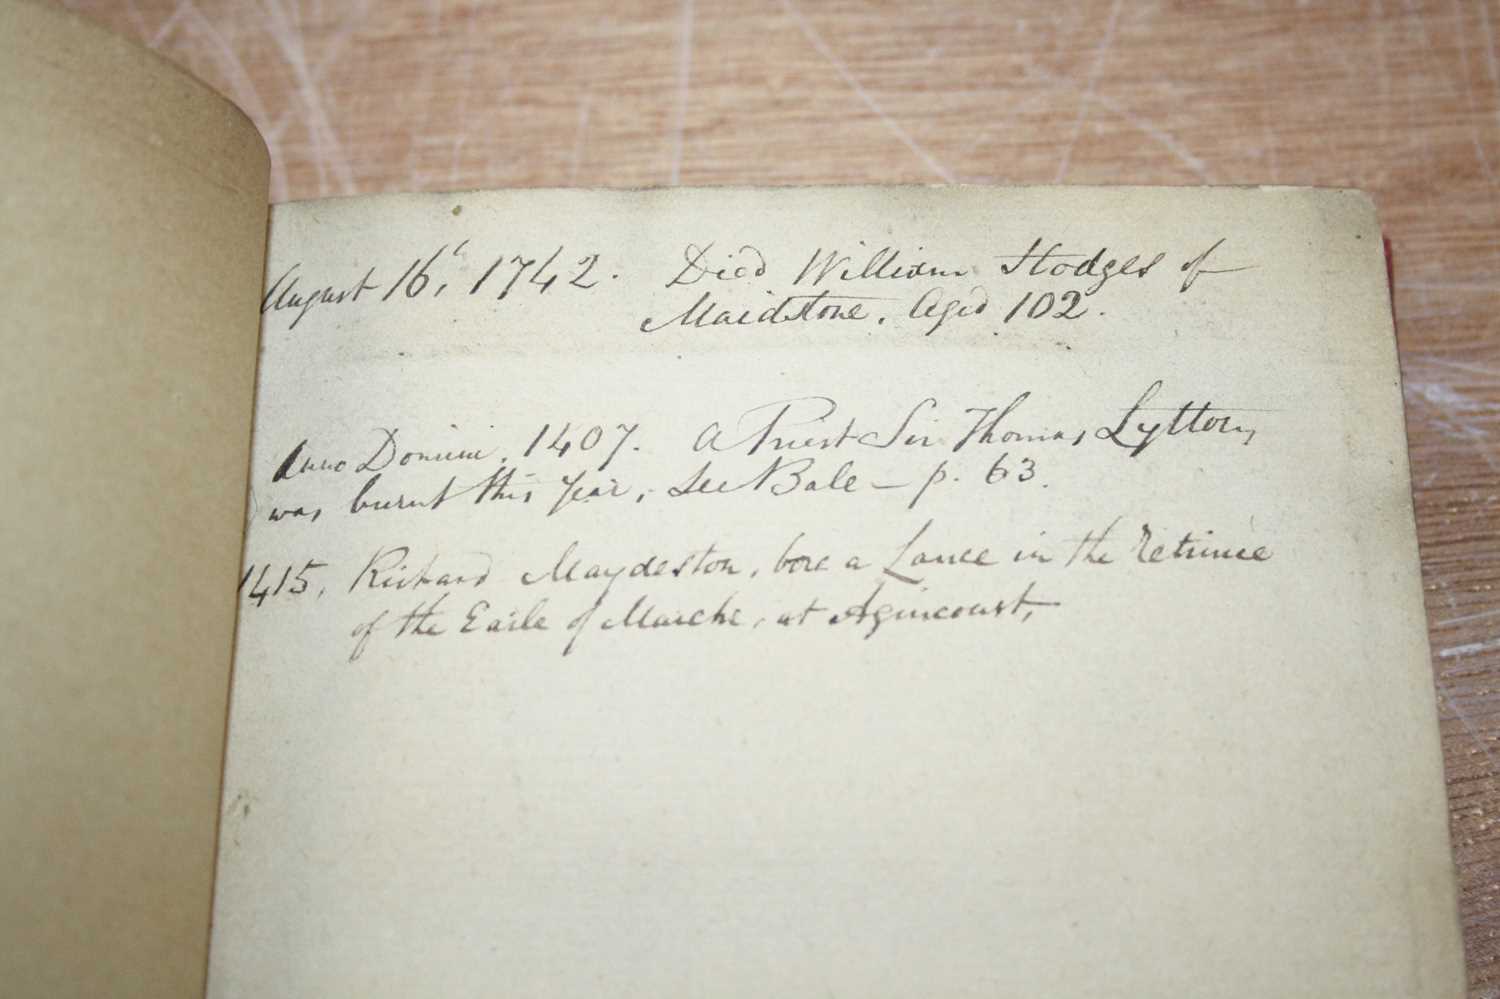 August 16, 1742. Died William Hodges of
Maidstone. Aged 102.
Anno Domini. 1407. A Priest Sir Thomas Lytton,
was burnt this Year, See Bale - p. 63.
1415, Richard Maydeston, bore a Lance in the Retinue
of the Earle of Marche, at Agincourt,